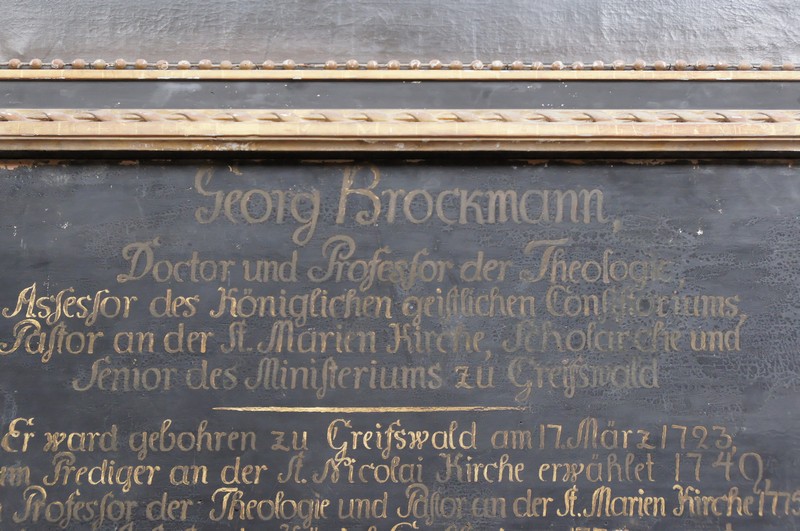 Georg Brockmann,
Doctor und Profesſor der Theologie,
Asſesſor des Königlichen geiſtlichen Conſiſtoriums,
Paſtor an der St. Marien Kirche, Scholarche und
Senior des Miniſteriums zu Greifswald
Er ward gebohren zu Greifswald am 17. März 1723,
Prediger an der St. Nicolai Kirche erwählet 1740,
Profesſor der Theologie und Paſtor an der St. Marien Kirche